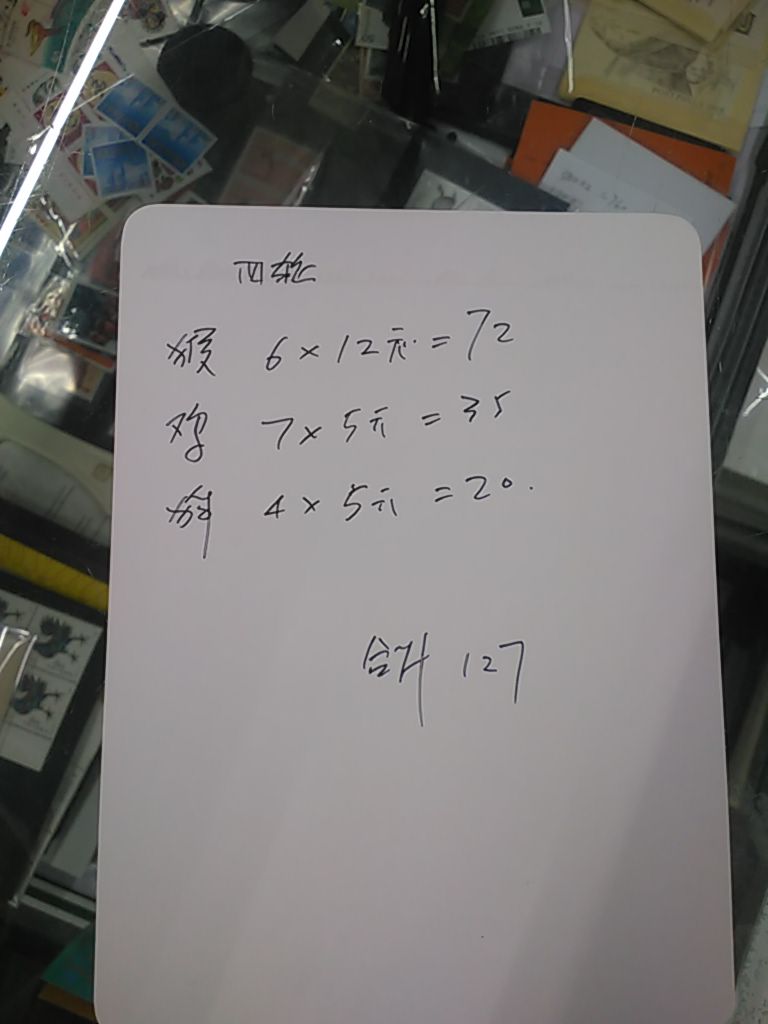 四轮
猴 6×12元=72
鸡 7×5元=35
狗 4×5元=20.
合计 127